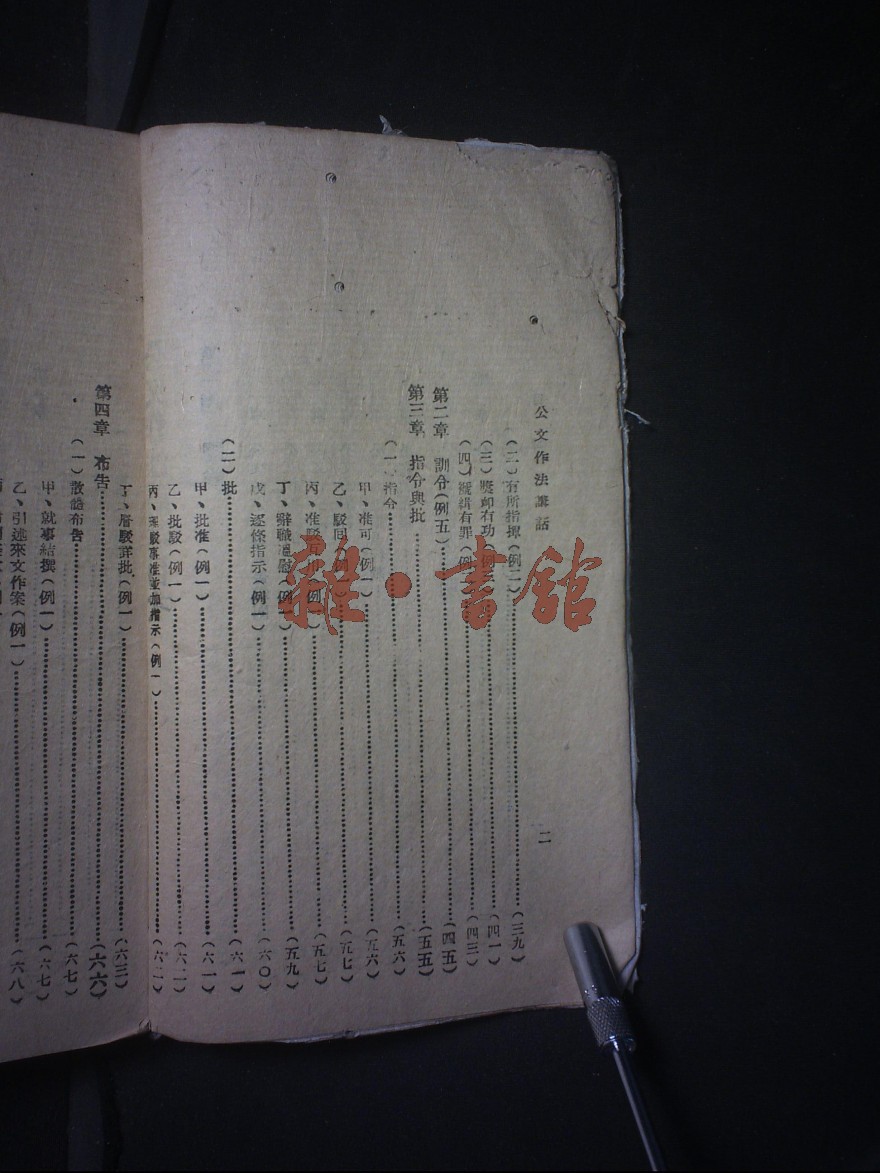 公文作法講話
二
(二)有所指揮(例二)……(三九)
(三)獎卹有功(例……(四一)
(四)褫緝有罪(例……(四三)
第二章 訓令(例五)……(四五)
第三章 指令與批……(五五)
(一)指令……(五六)
甲、准可(例一)……(五六)
乙、駁回(例一)……(五七)
丙、准駁互用(例一)……(五七)
丁、辭職慰(例一)……(五九)
戊、逐條指示(例一)……(六〇)
(二)批……(六一)
甲、批准(例一)……(六一)
乙、批駁(例一)……(六二)
丙、駁事准並加指示(例一)……(六二)
丁、層駁詳批(例一)……(六三)
第四章 布告……(六六)
(一)散體布告……(六七)
甲、就事結撰(例一)……(六七)
乙、引述來文作案(例一)……(六八)
雜·書館